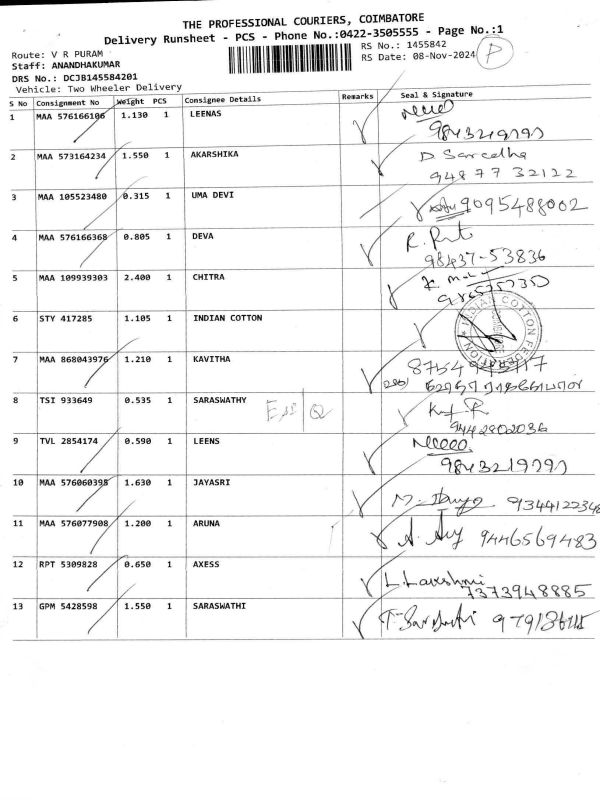 THE PROFESSIONAL COURIERS, COIMBATORE
Delivery Runsheet - PCS - Phone No.:0422-3505555 - Page No.:1
Route: V R PURAM RS No.: 1455842
Staff: ANANDHAKUMAR RS Date: 08-Nov-2024 P
DRS No.: DCJB145584201
Vehicle: Two Wheeler Delivery
S No Consignment No Weight PCS Consignee Details Remarks Seal & Signature
1 MAA 576166106 1.130 1 LEENAS
9843219797
2 MAA 573164234 1.550 1 AKARSHIKA D
94877 32122
3 MAA 105523480 0.315 1 UMA DEVI 9095488002
4 MAA 576166368 0.805 1 DEVA R.
98437-53836
5 MAA 109939303 2.400 1 CHITRA K
6 STY 417285 1.105 1 INDIAN COTTON INDIAN COTTON FEDERATION
7 MAA 868043976 1.210 1 KAVITHA
8 TSI 933649 0.535 1 SARASWATHY
9442802036
9 TVL 2854174 0.590 1 LEENS
9843219797
10 MAA 576060395 1.630 1 JAYASRI M. 9344122348
11 MAA 576077908 1.200 1 ARUNA A. 9446569483
12 RPT 5309828 0.650 1 AXESS L. Lakshmi
7373948885
13 GPM 5428598 1.550 1 SARASWATHI T.